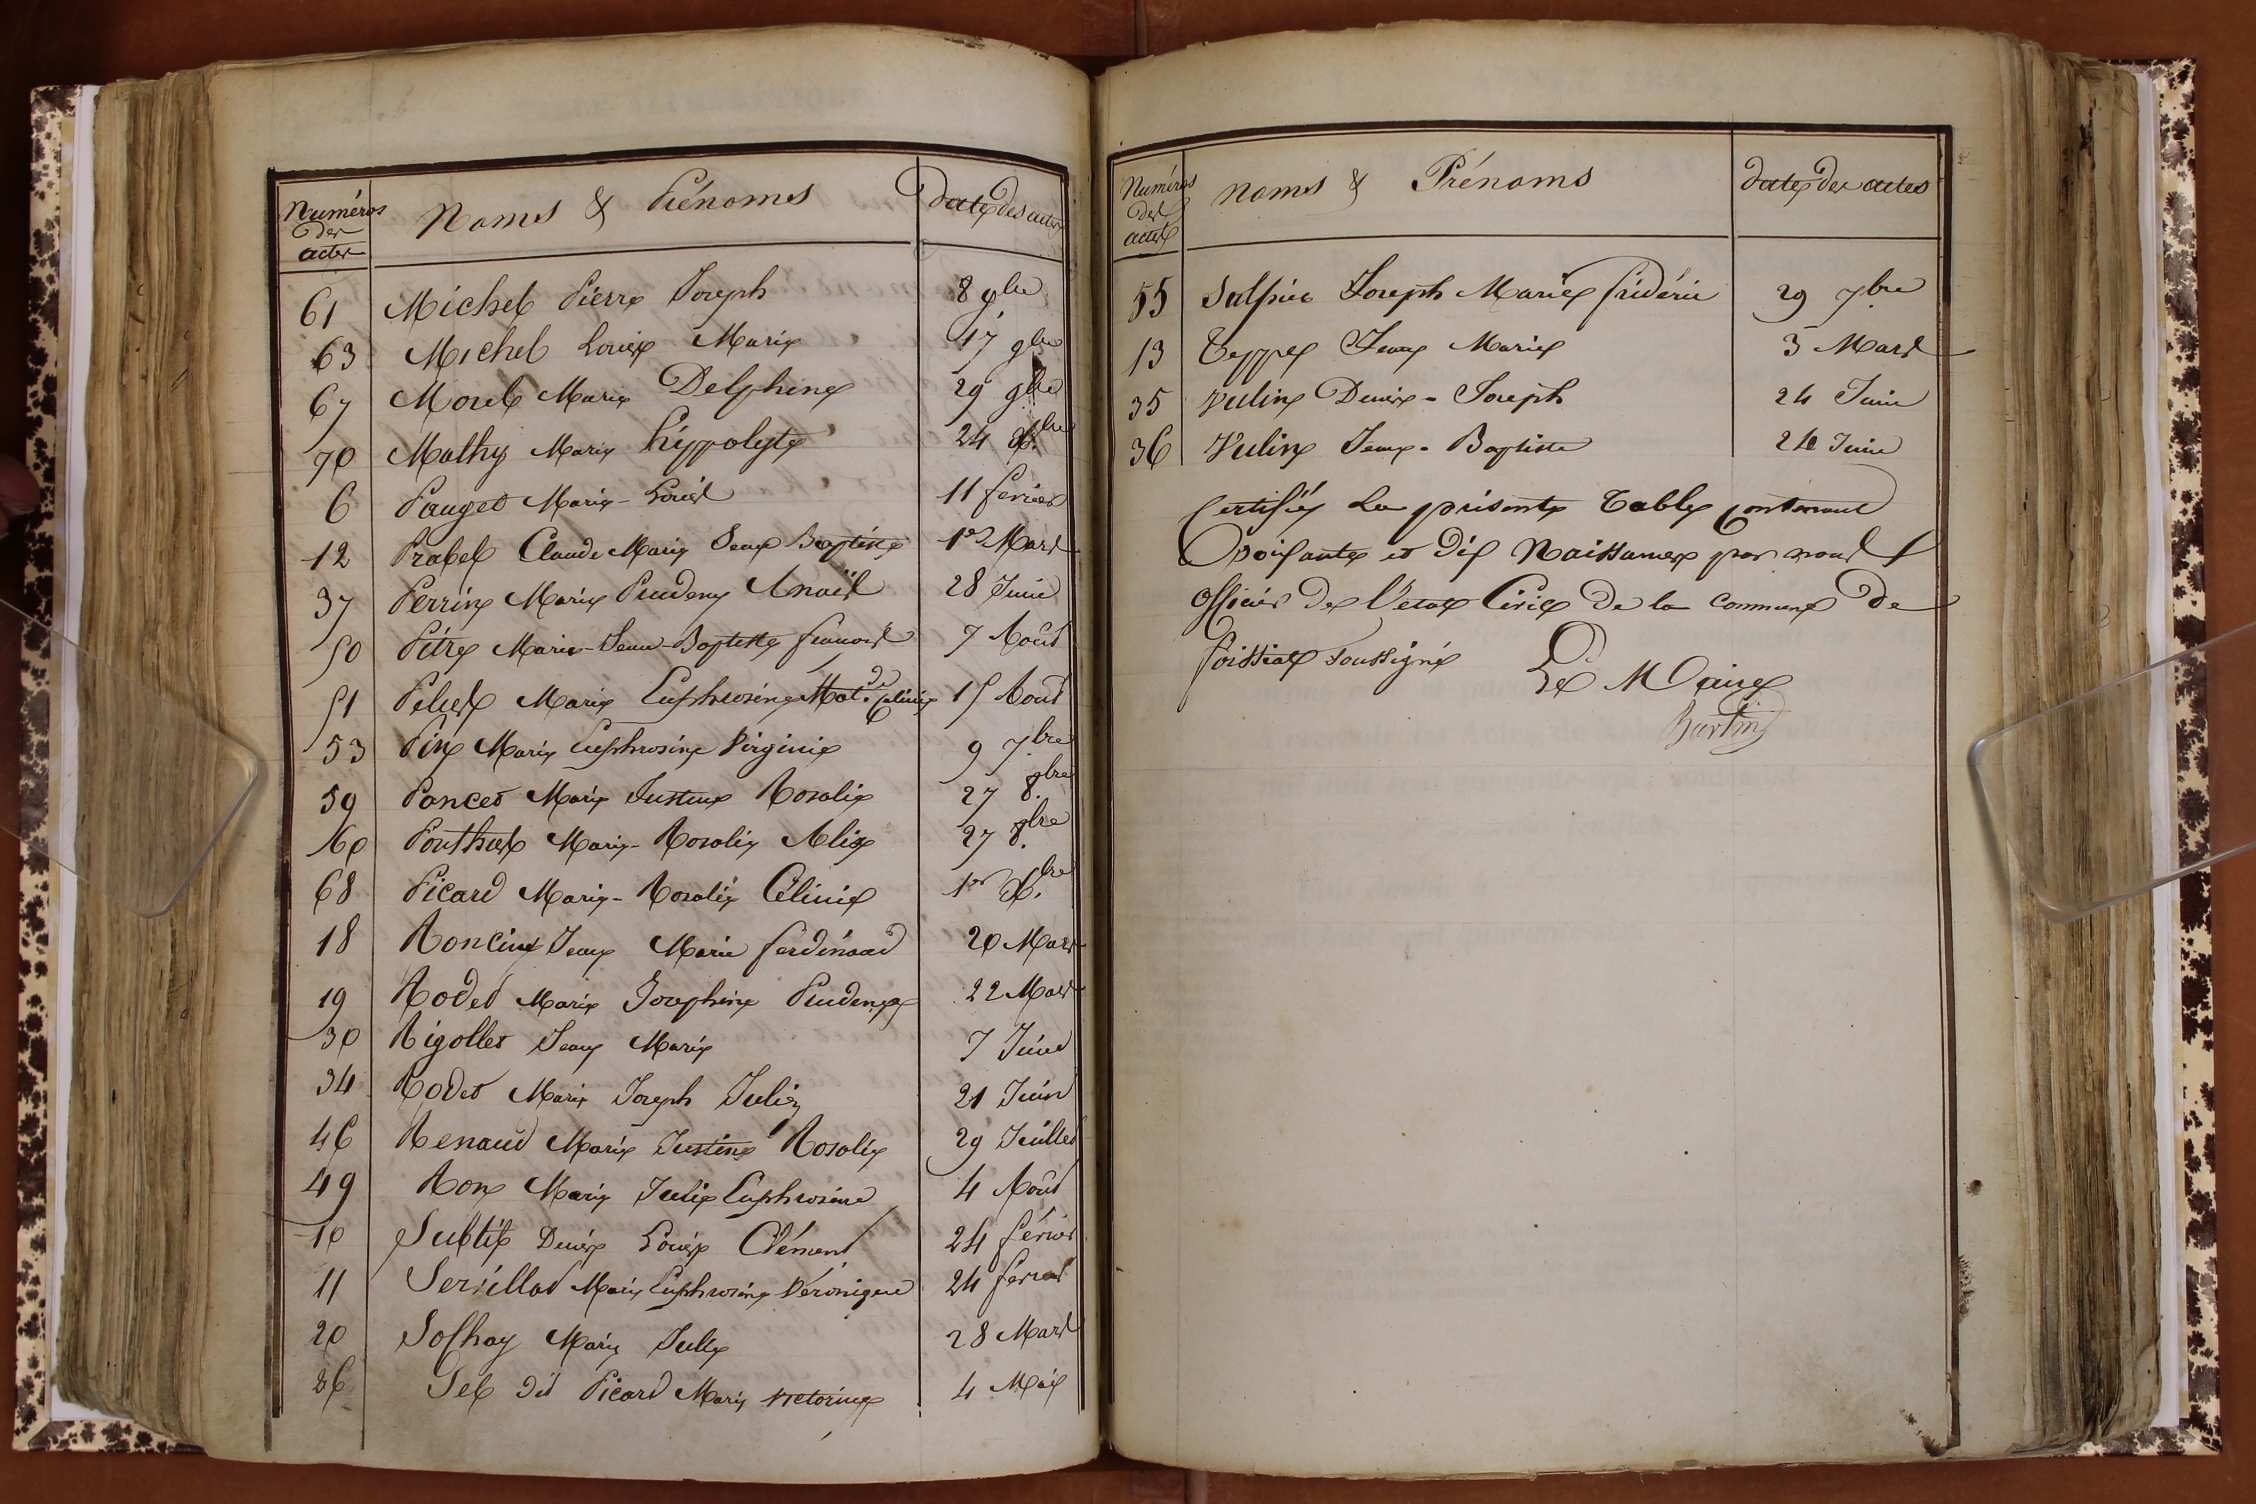 Numéros
des
actes
Noms & Prénoms
date des actes
61 Michel Pierre Joseph 8 9bre
63 Michel Louise Marie 17 9bre
67 Morel Marie Delphine 29 9bre
70 Mathy Marie hyppolyte 24 Xbre
6 Pauget Marie-Louise 11 fevrier
12 Prabel Claude Marie Jean Baptiste 1er Mars
37 Perrin Marie Prudence Anaïs 28 Juin
50 Pitre Marie-Jean-Baptiste francois 7 Août
51 Marie Euphrosine Mat.de Celinie 15 Aout
53 Pin Marie Euphrosine Virginie 9 7.bre
59 Poncet Marie Justine Rosalie 27 8.bre
60 Marie-Rosalie Alix 27 8.bre
68 Picard Marie-Rosalie Célinie 1er X.bre
18 Roncin Jean Marie ferdinand 20 Mars
19 Rodet Marie Josephine Prudence 22 Mars
30 Rigollet Jean Marie 7 Juin
34 Rodet Marie Joseph Julien 21 Juin
46 Renaud Marie Justine Rosalie 29 Juillet
49 Marie Julie Euphrosine 4 Août
10 Subtil Denis Louis Clément 24 févrir
11 Servillat Marie Euphrosine Véronique 24 fevrier
20 Solhay Marie Julie 28 Mars
26 Gel dit Picard Marie victorine 4 Mai
Numéros
des
actes
noms & Prénoms
date des actes
55 Sulpice Joseph Marie frédéric 29 7.bre
13 Teppe Jean Marie 3 Mars
35 Vulin Denis-Joseph 24 Juin
36 Vulin Jean-Baptiste 24 Juin
Certifiée La présente Table contenant
Soixante et dix Naissances par nous
officier de l'état Civil De la commune De
foissiat soussigné
Le Maire